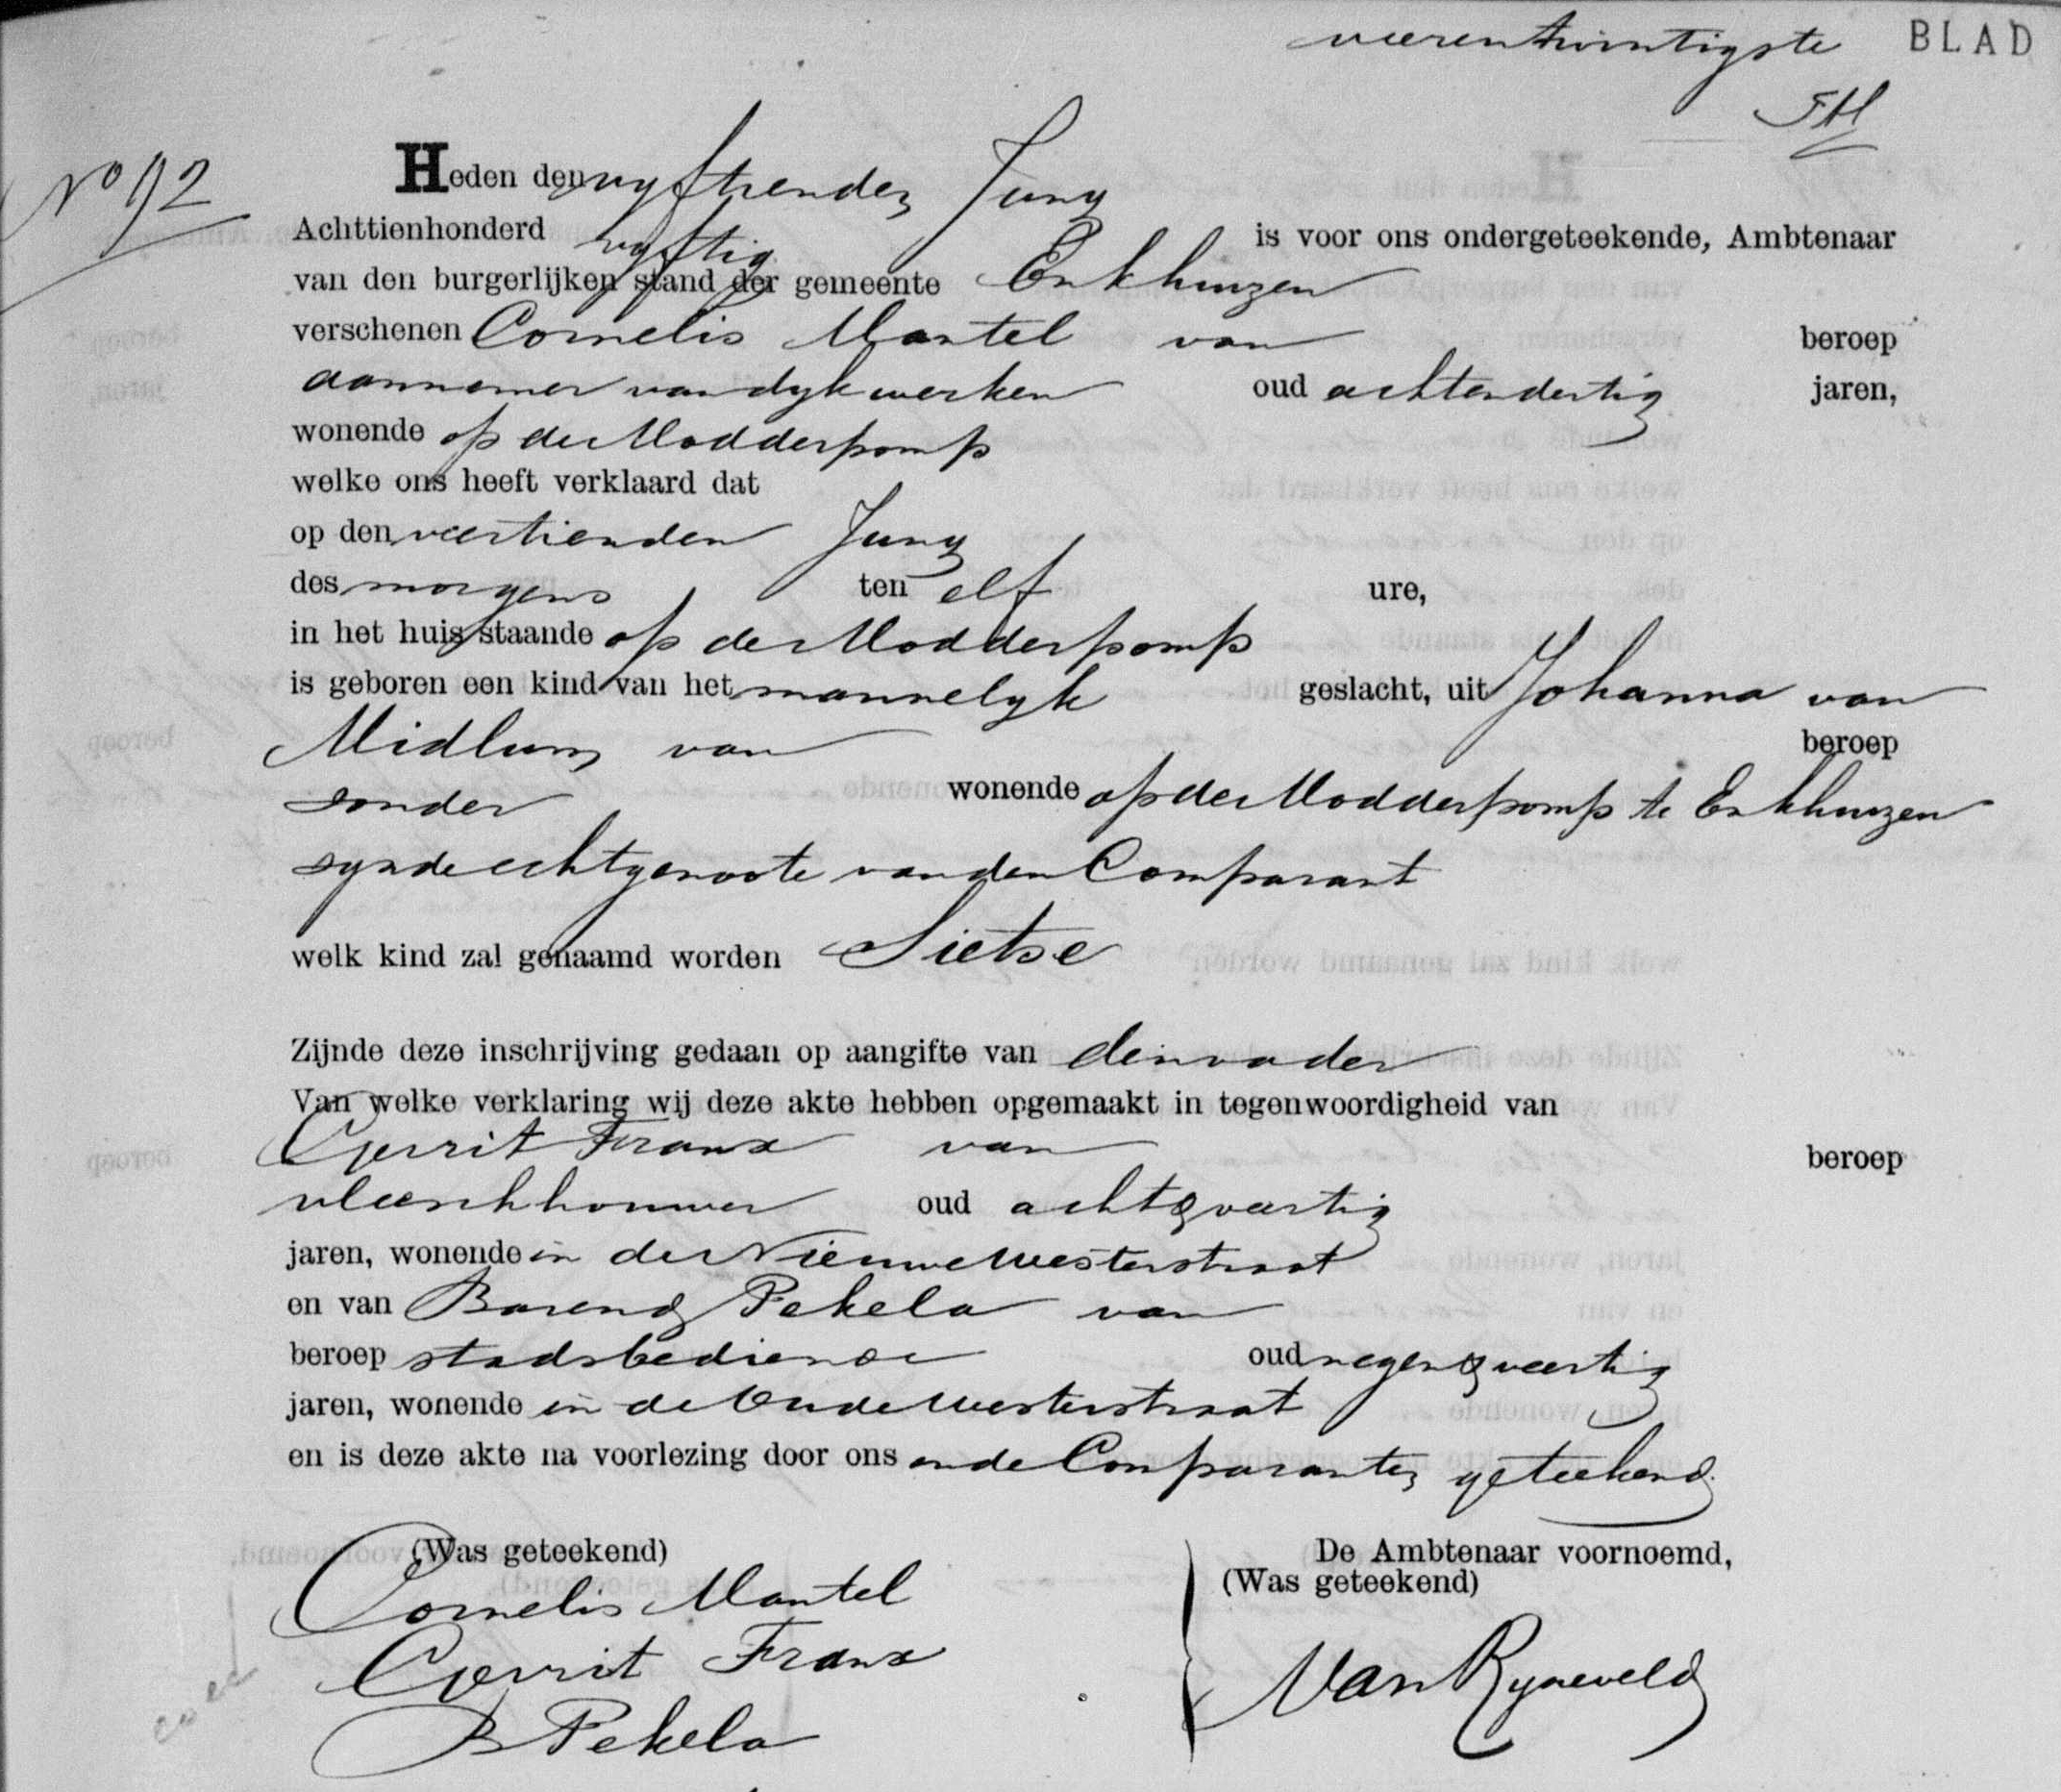 vierentwintigste BLAD
No 92
Heden den vyftienden Juny
Achttienhonderd vyftig is voor ons ondergeteekende, Ambtenaar
van den burgerlijken stand der gemeente Enkhuizen
verschenen Cornelis Mantel van beroep
aannemer van dykwerken oud achtendertig jaren,
wonende op de Modderpomp
welke ons heeft verklaard dat
op den veertienden Juny
des morgens ten elf ure,
in het huis staande op de Modderpomp
is geboren een kind van het mannelyk geslacht, uit Johanna van
Midlum van beroep
zonder wonende op de Modderpomp te Enkhuizen
zynde echtgenoote van den Comparant
welk kind zal genaamd worden Sietse
Zijnde deze inschrijving gedaan op aangifte van den vader
Van welke verklaring wij deze akte hebben opgemaakt in tegenwoordigheid van
Gerrit Franx van beroep
vleeschhouwer oud acht & veertig
jaren, wonende in de Nieuwe Westerstraat
en van Barend Pekela van
beroep stadsbediende oud negen & veertig
jaren, wonende in de Oude Westerstraat
en is deze akte na voorlezing door ons en de Comparanten geteekend.
(Was geteekend) De Ambtenaar voornoemd,
(Was geteekend)
Cornelis Mantel
Gerrit Franx
B Pekela
Van Ryneveld